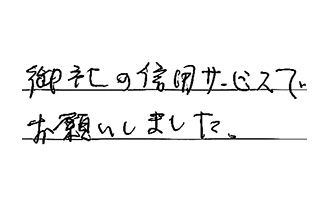 御社の信用サービスで
お願いしました。